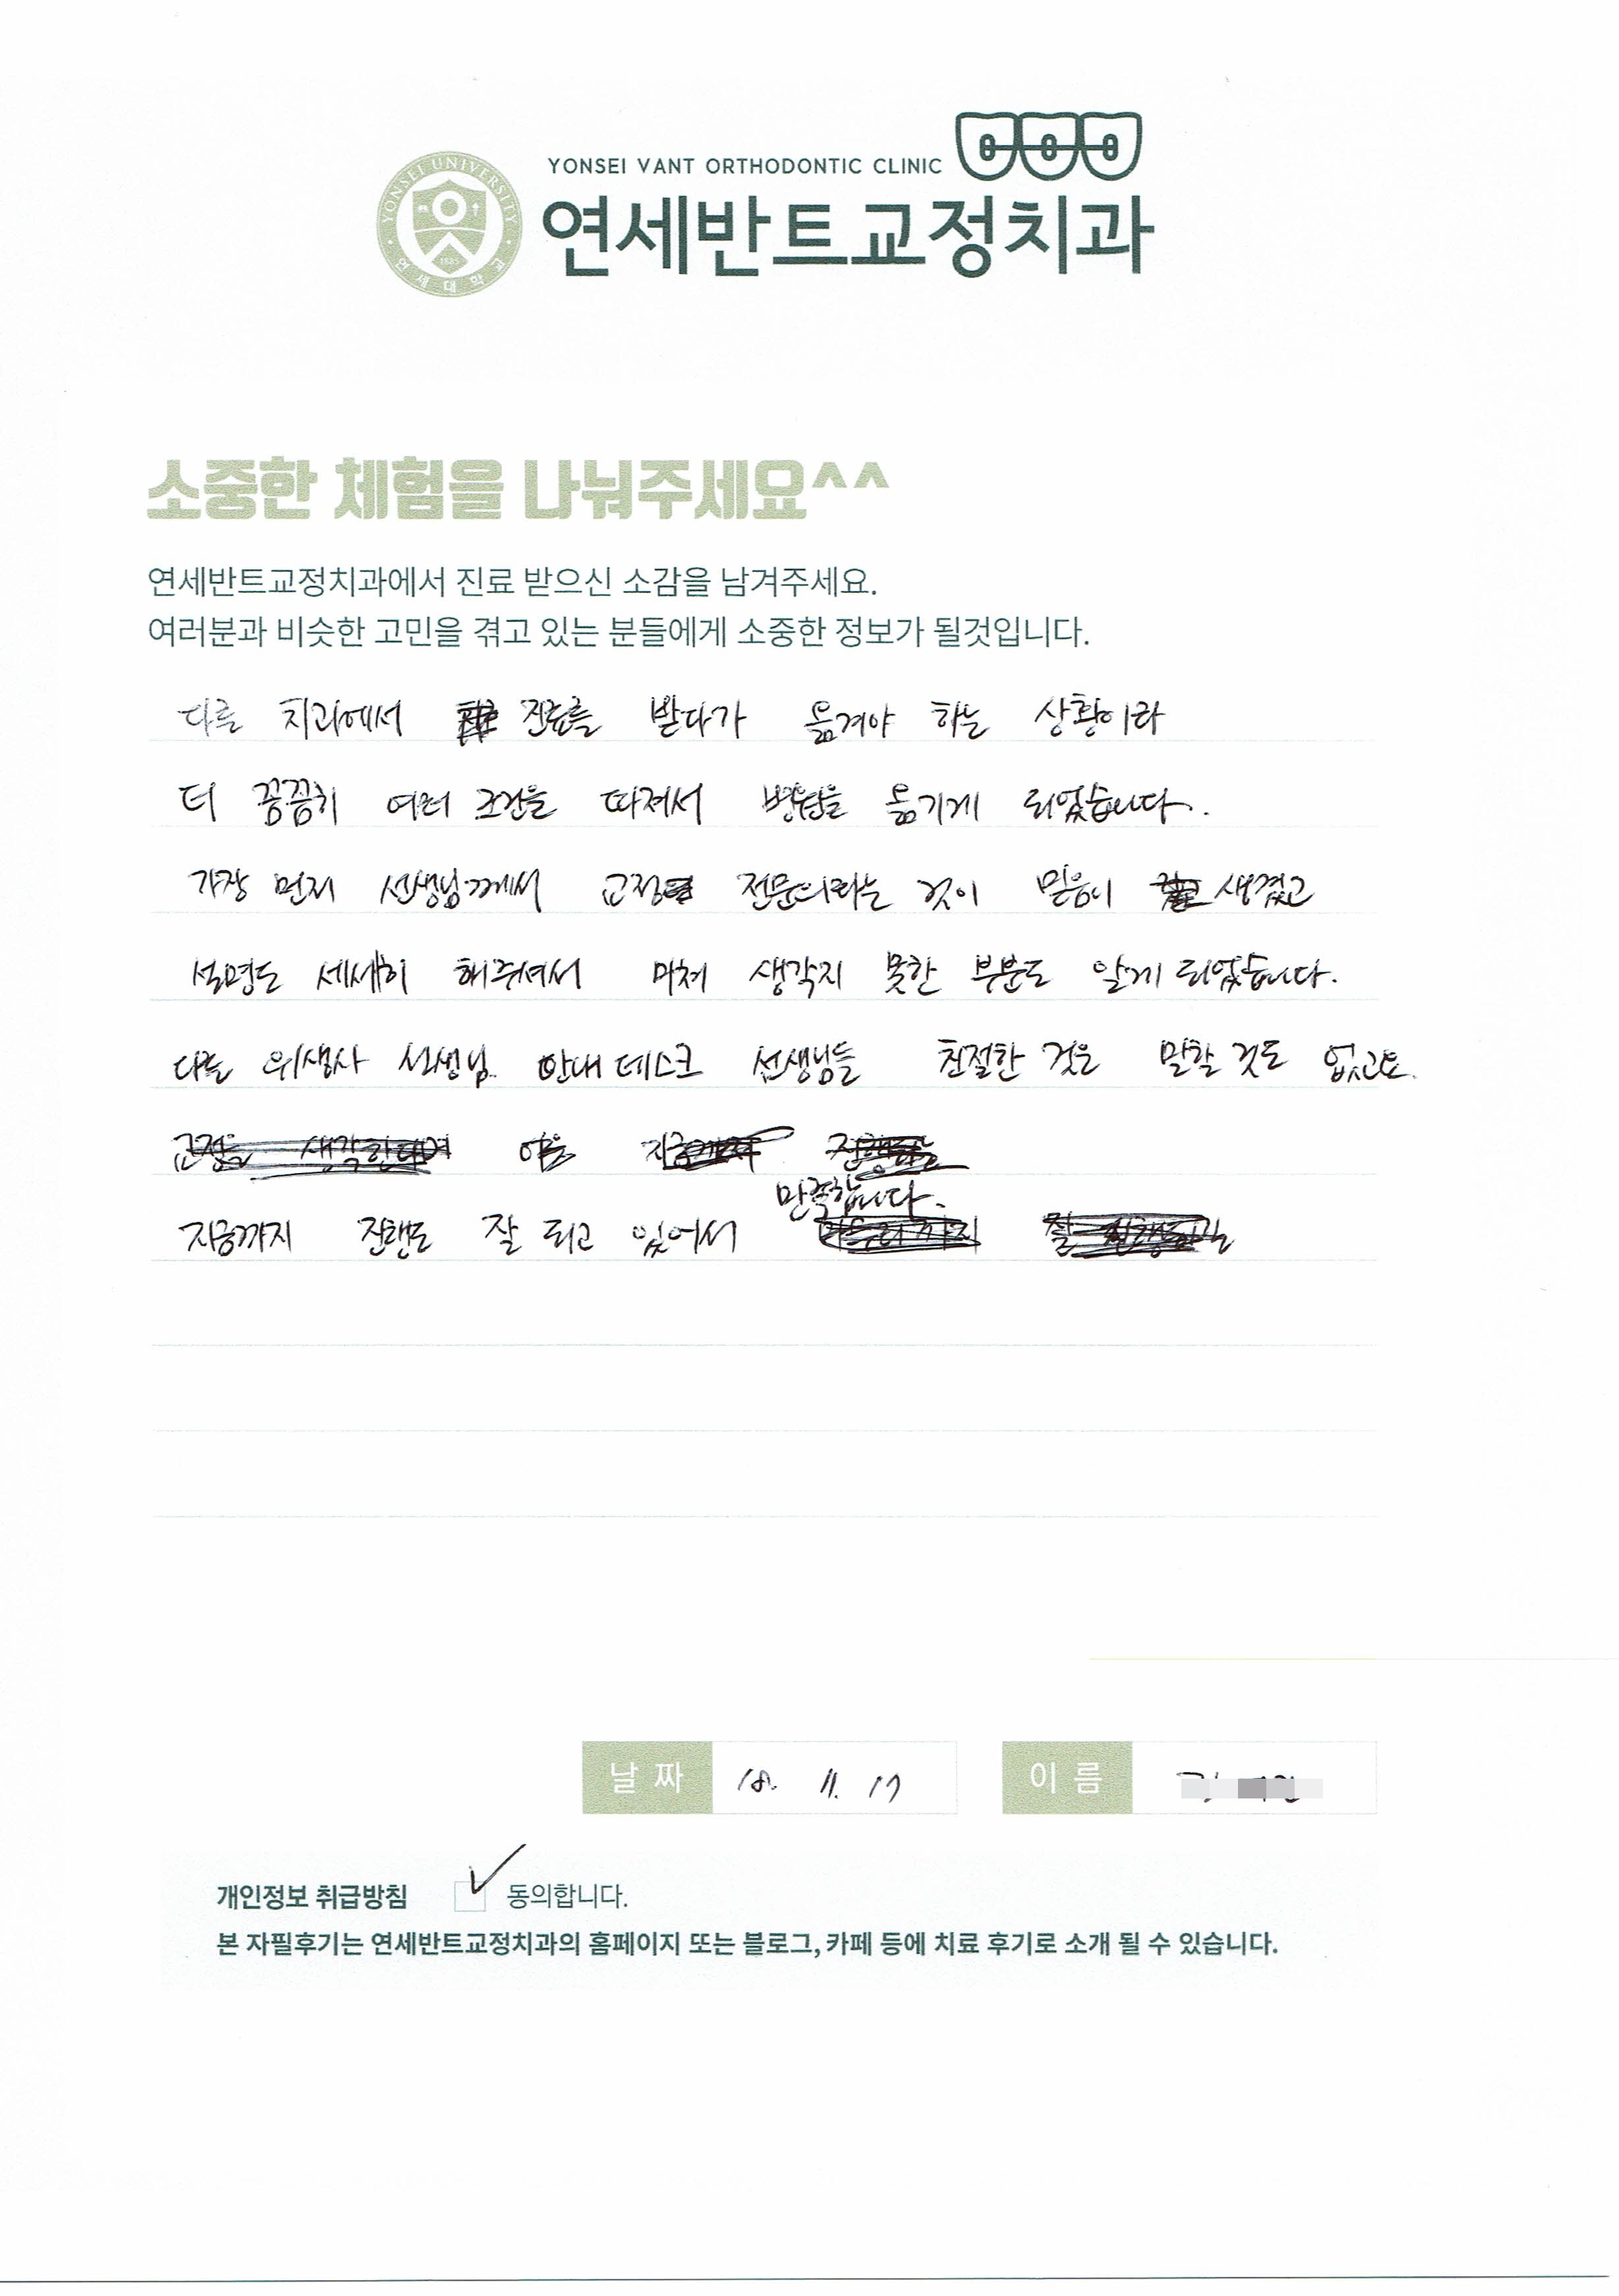 YONSEI VANT ORTHODONTIC CLINIC
연세반트교정치과
YONSEI UNIVERSITY
1885
연세대학교
소중한 체험을 나눠주세요^^
연세반트교정치과에서 진료 받으신 소감을 남겨주세요.
여러분과 비슷한 고민을 겪고 있는 분들에게 소중한 정보가 될것입니다.
다른 치과에서 진료를 받다가 옮겨야 하는 상황이라
더 꼼꼼히 여러 조건을 따져서 병원을 옮기게 되었습니다.
가장 먼저 선생님께서 교정 전문의라는 것이 믿음이 생겼고
설명도 세세히 해주셔서 미처 생각지 못한 부분도 알게 되었습니다.
다른 위생사 선생님 안내 데스크 선생님들 친절한 것은 말할 것도 없고요.
만족합니다.
지금까지 진행도 잘 되고 있어서
날짜 18. 11. 17
이름
개인정보 취급방침 동의합니다.
본 자필후기는 연세반트교정치과의 홈페이지 또는 블로그, 카페 등에 치료 후기로 소개 될 수 있습니다.